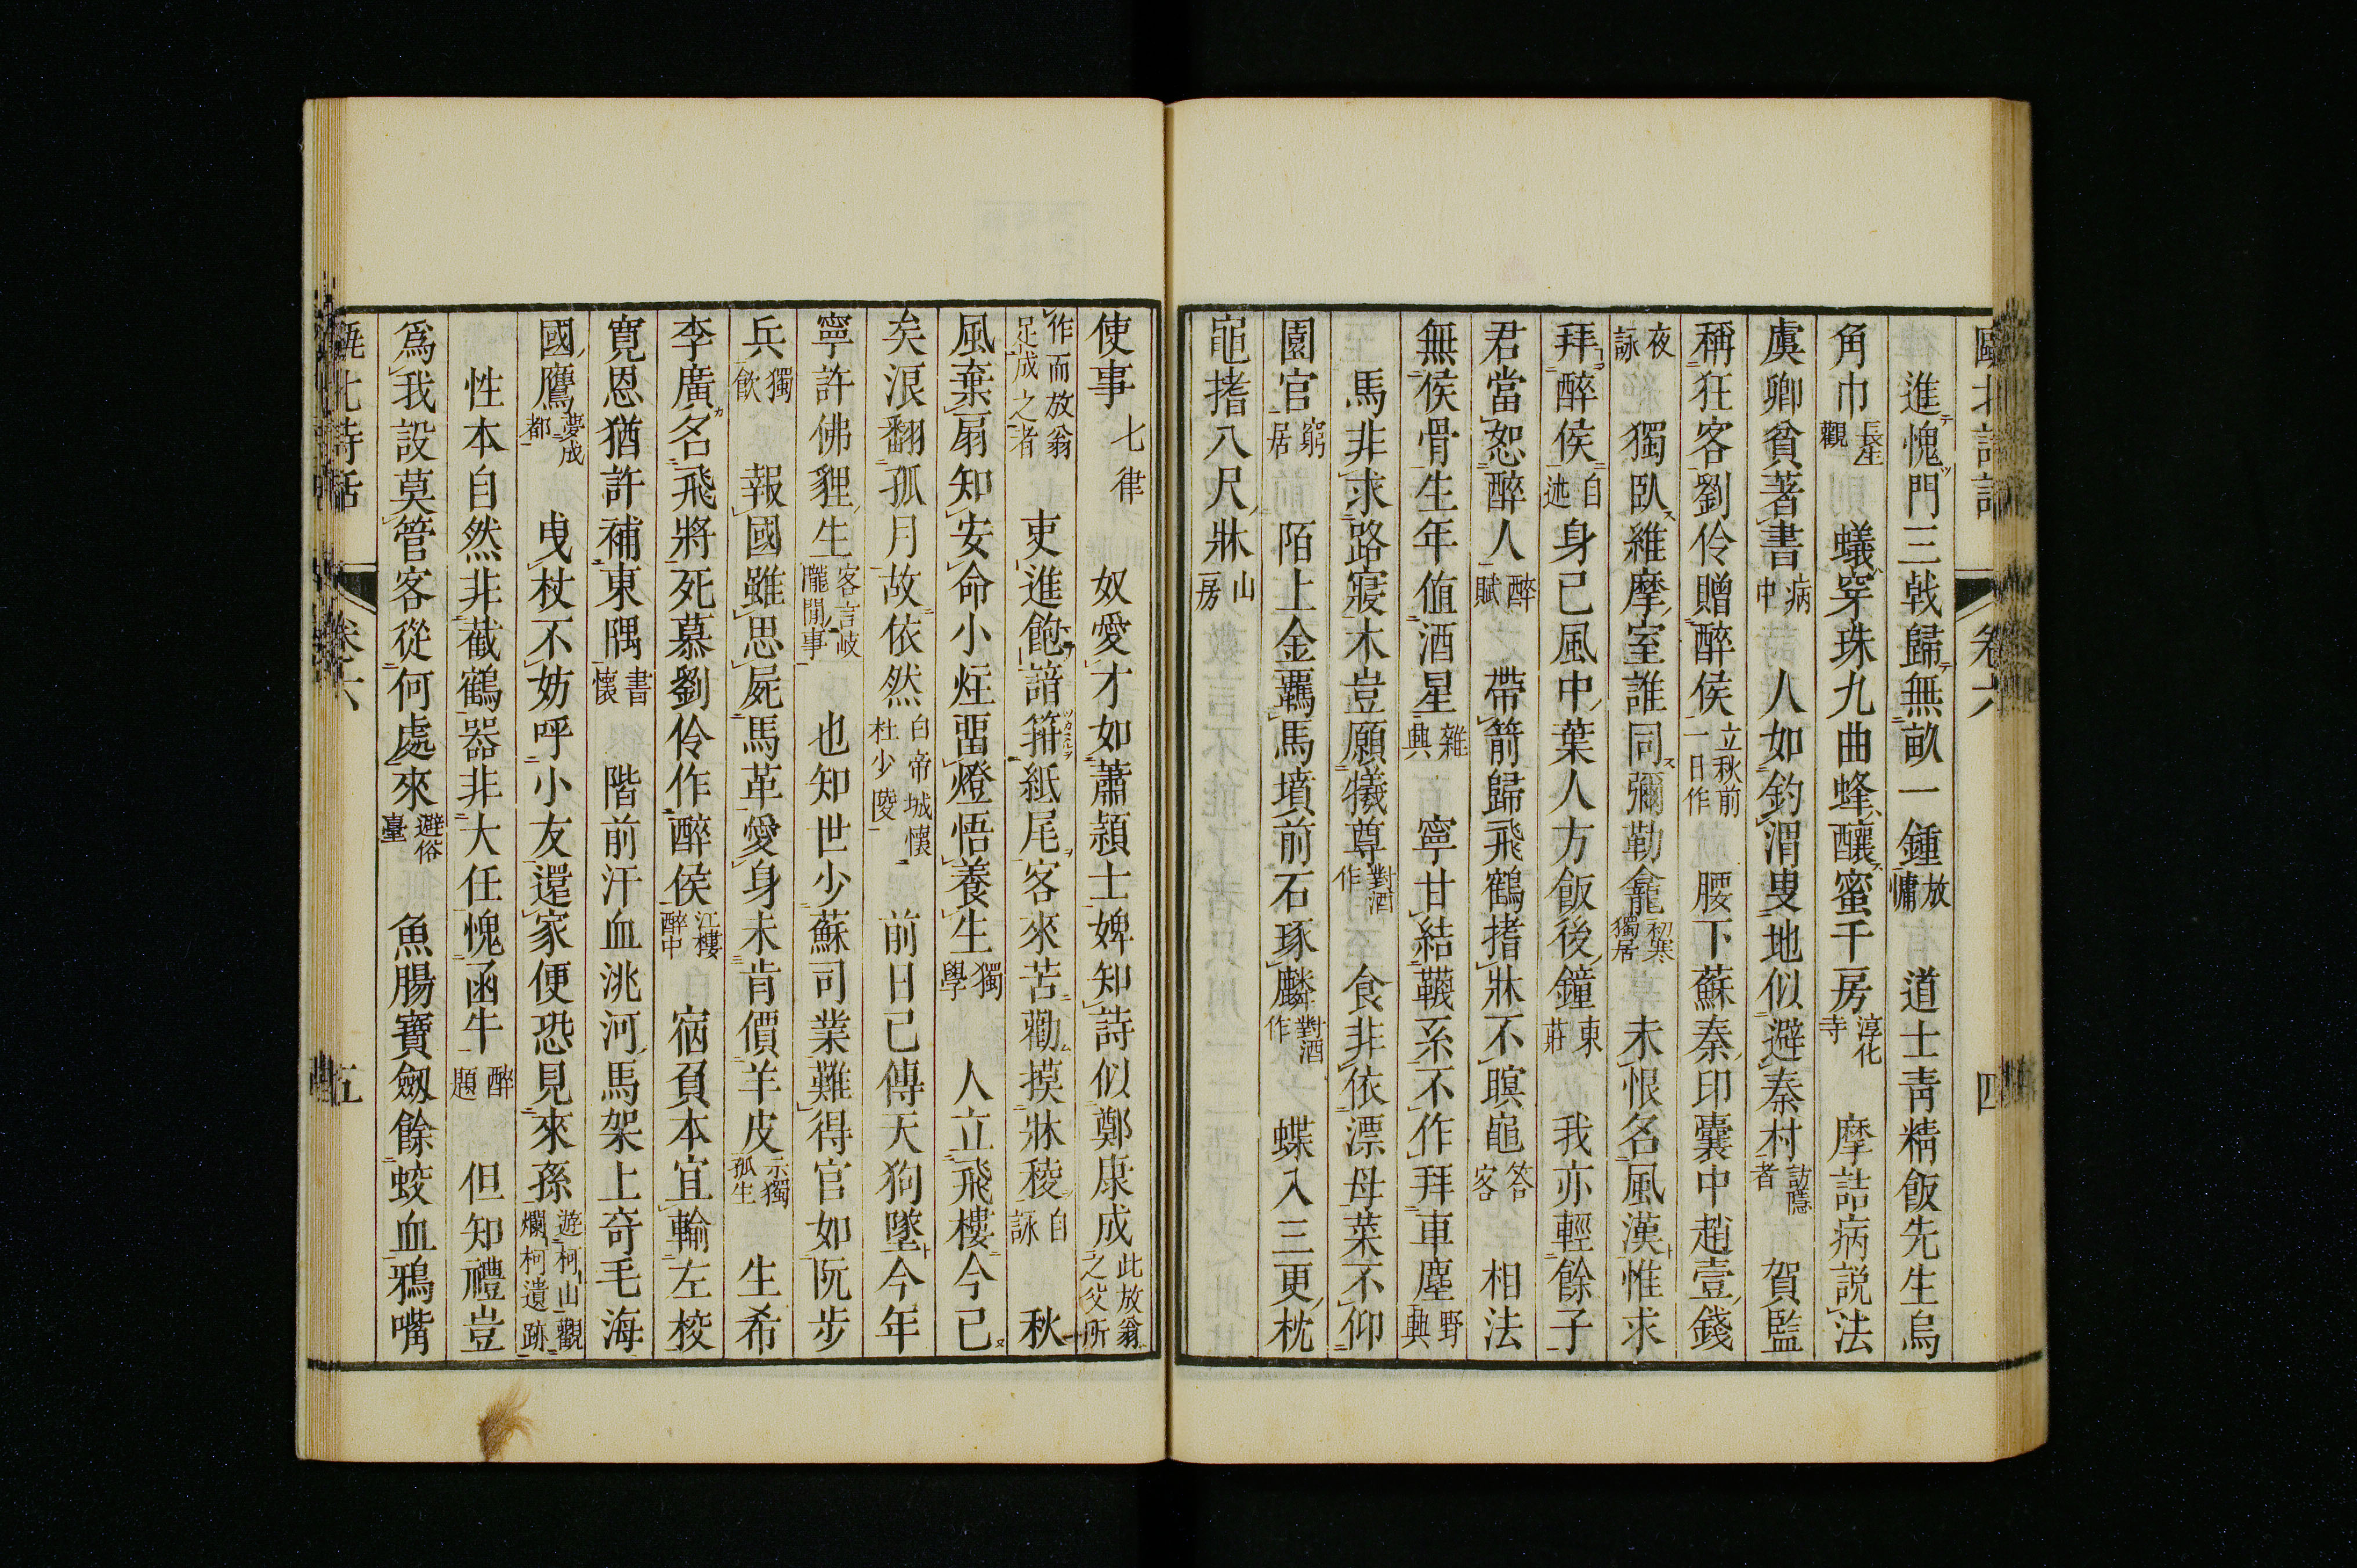 甌北詩話 卷六 四
進愧門三戟歸無畝一鍾放慵 道士靑精飯先生烏
角巾長生觀 蟻穿珠九曲蜂釀蜜千房淳化寺 摩詰病説法
虞卿貧著書病中 人如釣渭叟地似避秦村訪隱者 賀監
稱狂客劉伶贈醉侯立秋前一日作 腰下蘇秦印囊中趙壹錢
夜詠 獨臥維摩室誰同彌勒龕初寒獨居 未恨名風漢惟求
拜醉侯自述 身已風中葉人方飯後鐘東莊 我亦輕餘子
君當恕醉人醉賦 帶箭歸飛鶴搘牀不瞑龜答客 相法
無侯骨生年値酒星雜興 寧甘結韈系不作拜車塵野興
馬非求路寢木豈願犧尊對酒作 食非依漂母菜不仰
園官窮居 陌上金羈馬墳前石琢麟對酒作 蝶入三更枕
龜搘八尺牀山房
使事七律 奴愛才如蕭穎士婢知詩似鄭康成此放翁之父所
作而放翁足成之者 吏進飽諳箝紙尾客來苦勸摸牀稜自詠 秋
風棄扇知安命小炷畱燈悟養生獨學 人立飛樓今已
矣浪翻孤月故依然白帝城懷杜少陵 前日已傳天狗墜今年
寧許佛貍生客言岐隴閒事 也知世少蘇司業難得官如阮步
兵獨飮 報國雖思屍馬革愛身未肯價羊皮示獨孤生 生希
李廣名飛將死慕劉伶作醉侯江樓醉中 宿負本宜輸左校
寛恩猶許補東隅書懷 階前汗血洮河馬架上奇毛海
國鷹夢成都 曳杖不妨呼小友還家便恐見來孫遊柯山觀爛柯遺跡
性本自然非截鶴器非大任愧函牛醉題 但知禮豈
爲我設莫管客從何處來避俗臺 魚腸寶劔餘蛟血鴉嘴
甌北詩話 卷六 五